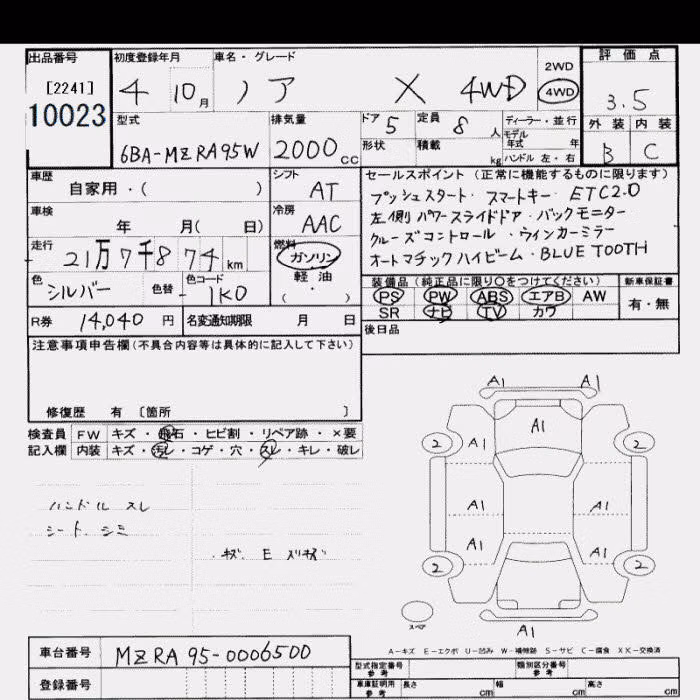 出品番号
[2241]
10023
初度登録年月
4 10月
車名・グレード
ノア X 4WD
2WD
4WD
評価点
3.5
外装 内装
B C
型式
6BA-MZRA95W
排気量
2000cc
ドア 5
形状
定員 8人
積載 kg
ディーラー・並行
モデル年式 年
ハンドル 左・右
車歴
自家用・( )
シフト
AT
車検
年 月( 日)
冷房
AAC
走行
21万7千874km
燃料
ガソリン
軽油
( ・ )
色
シルバー
色替
色コード
1K0
セールスポイント(正常に機能するものに限ります)
プッシュスタート・スマートキー・ETC2.0
左側パワースライドドア・バックモニター
クルーズコントロール・ウィンカーミラー
オートマチックハイビーム・BLUE TOOTH
装備品(純正品に限り○をつけてください)
PS PW ABS エアB AW
SR ナビ TV カワ
新車保証書
有・無
R券 14,040円
名変通知期限 月 日
後日品
注意事項申告欄(不具合内容等は具体的に記入して下さい)
修復歴 有 〔箇所 〕
検査員 FW キズ・飛石・ヒビ割・リペア跡・×要
記入欄 内装 キズ・汚レ・コゲ・穴・スレ・キレ・破レ
ハンドル スレ
シート シミ
キズ E スリキズ
A1 A1
A1
2 A1 2
A1 A1
A1 A1
2 2
スペア
A1
A-キズ E-エクボ U-凹み W-補修跡 S-サビ C-腐食 XX-交換済
車台番号 MZRA95-0006500
登録番号
型式指定番号 参考
類別区分番号 参考
車庫証明用 参考 長さ cm 幅 cm 高さ cm